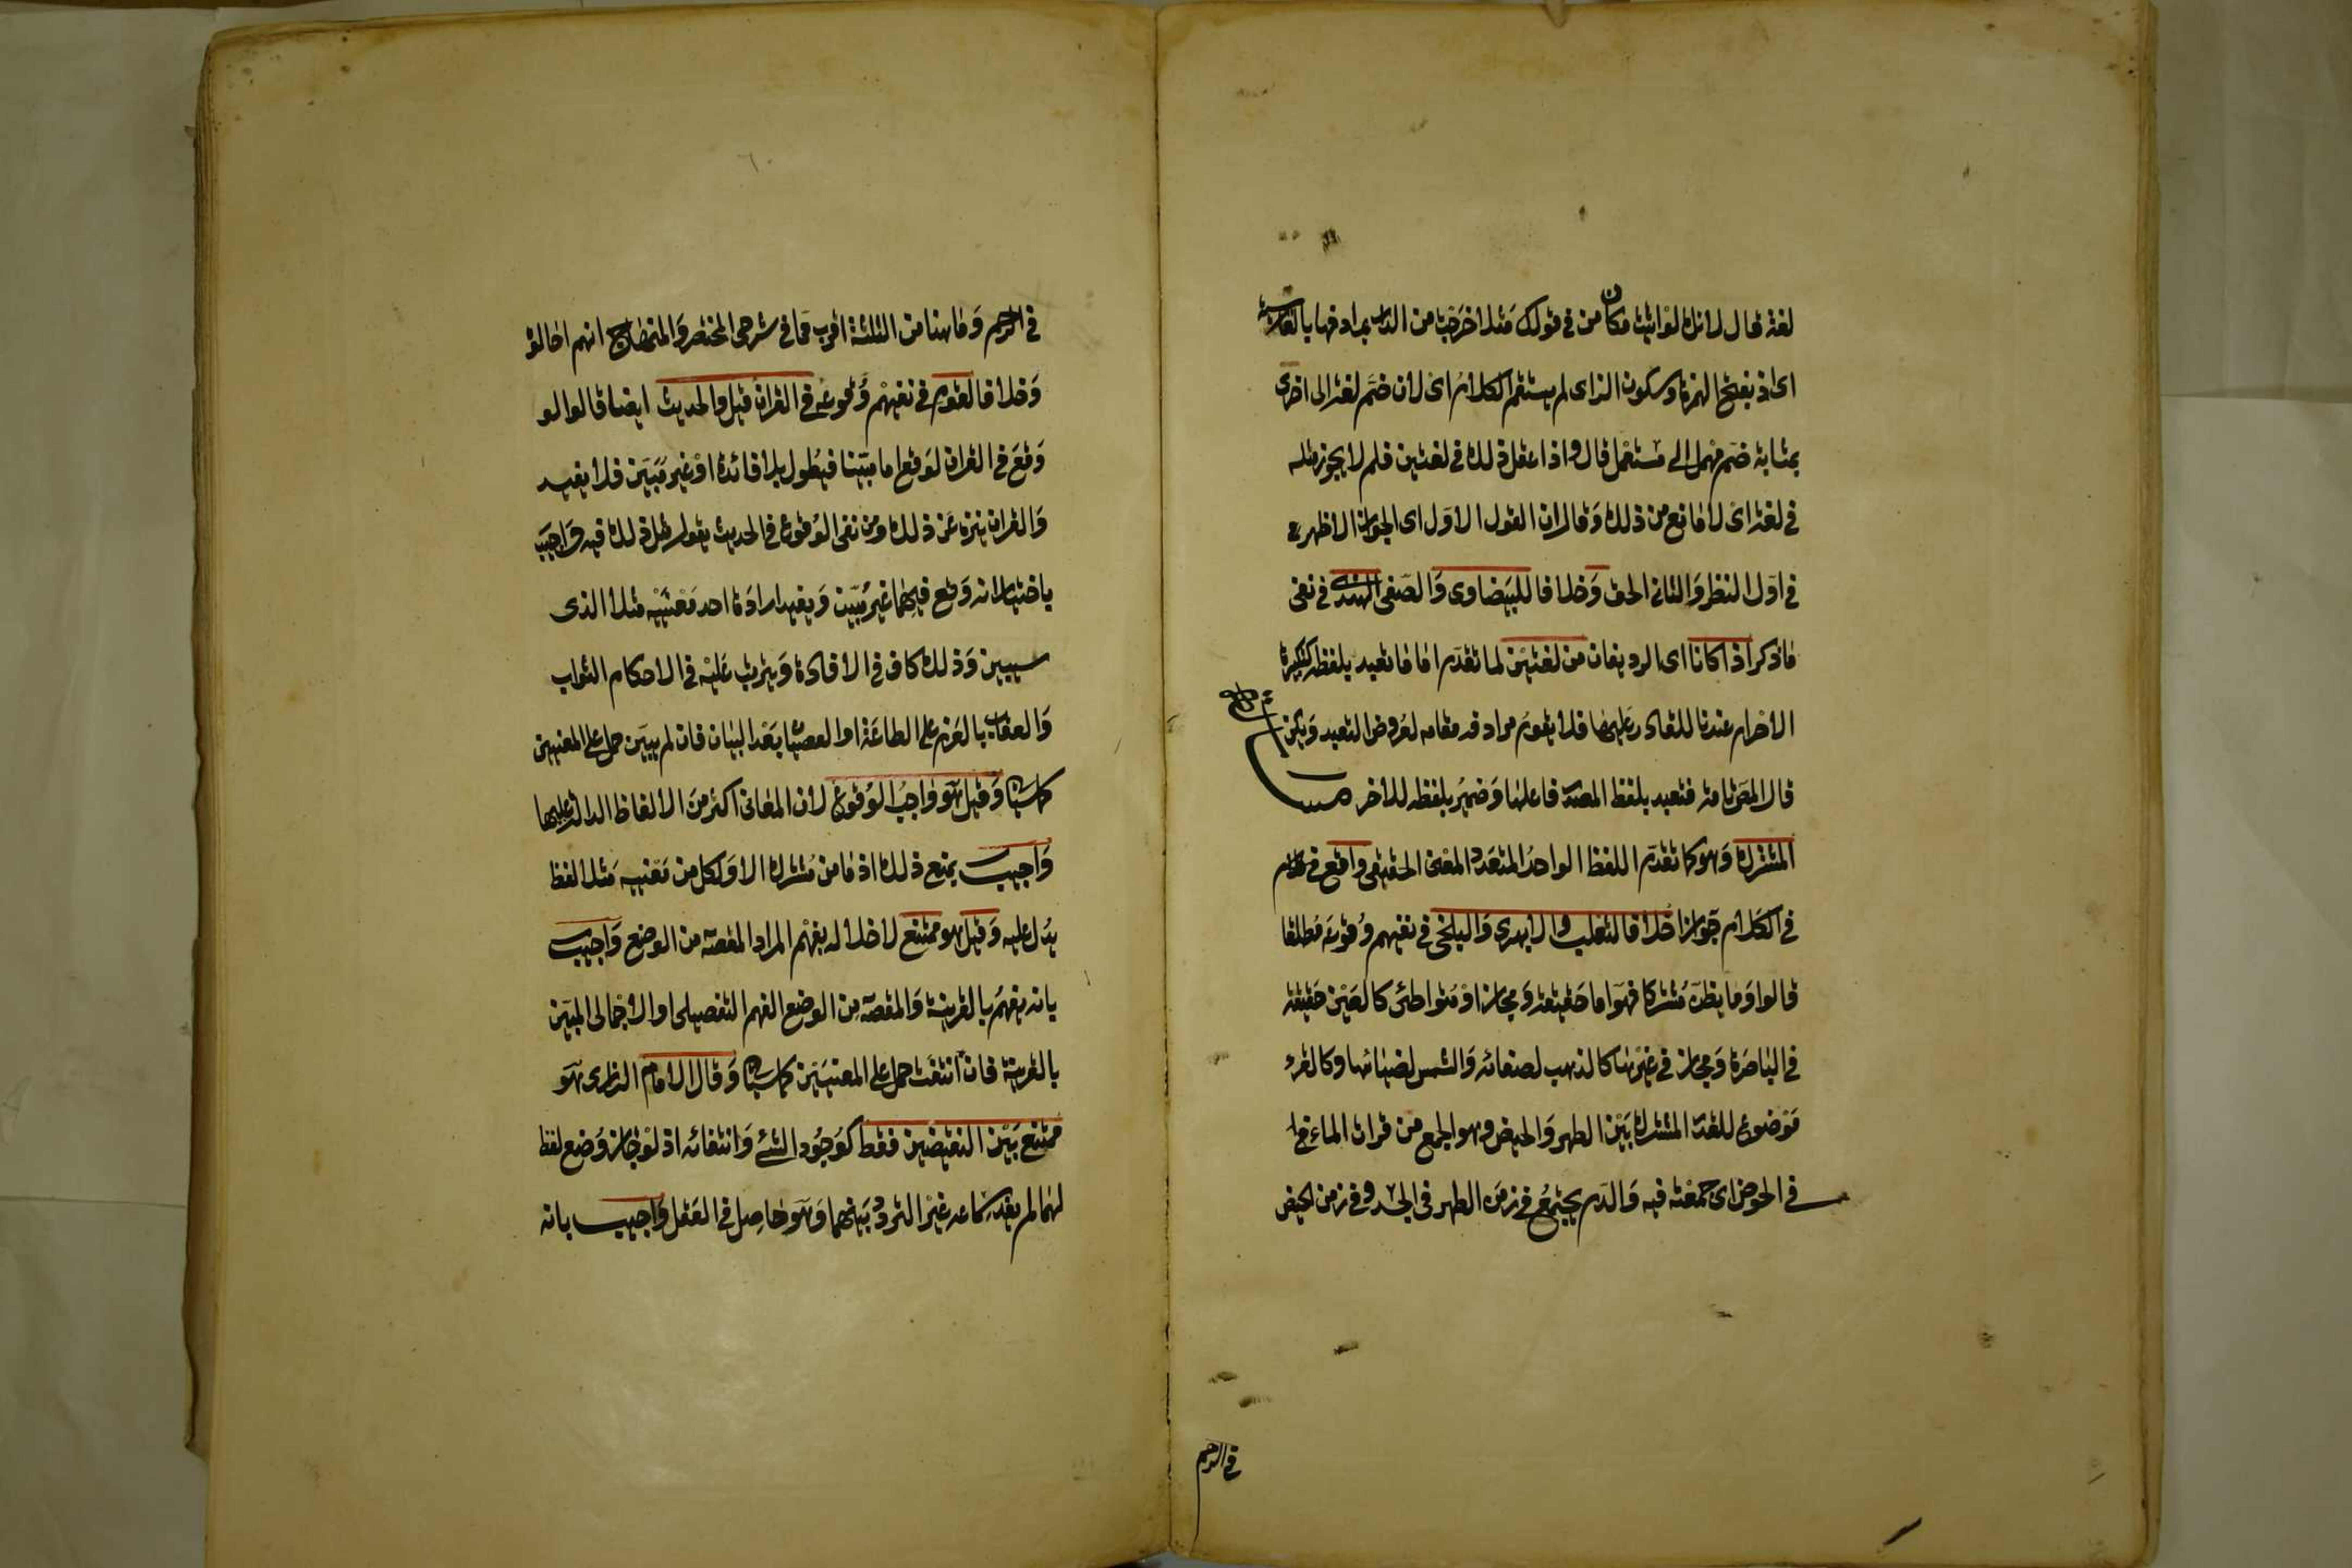 لغة قال لانك لو اتيت مكان من في قولك مثلا خرجت من الدار بمرادفها بالفارسية
اى از بفتح الهمزة وسكون الزاى لم يستقم الكلام اى لان ضم لغة الى اخرى
بمثابة ضم مهمل الى مستعمل قال واذا عقل ذلك في لغتين فلم لا يجوز مثله
في لغة اى لا مانع من ذلك وقال ان القول الاول اى الجواز الاظهر
في اول النظر والثانى الحق وخلافا للبيضاوى والصفى الهندى في نفى
ما ذكر اذا كانا اى الرديفان من لغتين لما تقدم اما ما تعبد بلفظه كتكبيرة
الاحرام عندنا للقادر عليها فلا يقوم مرادفه مقامه لعروض التعبد ويكن
قال المص ثامنه فتعبد بلفظ المصنف فاعلها وضمير بلفظه للاخر
المشترك وهو كما تقدم اللفظ الواحد المتعدد المعنى الحقيقى واقع
في الكلام جوازا خلافا لثعلب والابهرى والبلخى في نفيهم وقوعه مطلقا
قالوا وما يظن مشتركا فهو اما حقيقة ومجاز او متواطئ كالعين حقيقة
في الباصرة ومجاز في غيرها كالذهب لصفائه والشمس لضيائها وكالقرء
موضوع للقدر المشترك بين الطهر والحيض وهو الجمع من قرات الماء
في الحوض اى جمعته فيه والدم يجتمع في زمن الطهر في الجسد وفي زمن الحيض
في الرحم
في الرحم وما هنا من الثلثة اقرب مما في شرحى المختصر والمنهاج انهم احالوا
وخلافا لقوم في نفيهم وقوعه في القران قيل والحديث ايضا قالوا لو
وقع في القران لوقع اما مبينا فيطول بلا فائدة او غير مبين فلا يفيد
والقران ينزه عن ذلك ومن نفى الوقوع في الحديث يقول مثل ذلك فيه واجيب
باختيار انه وقع فيهما غير مبين ويفيد ارادة احد معنييه مثلا الذى
سيبين وذلك كاف في الافادة ويترتب عليه في الاحكام الثواب
والعقاب بالعزم على الطاعة او العصيان بعد البيان فان لم يبين حمل على المعنيين
كما سياتى وقيل هو واجب الوقوع لان المعانى اكثر من الالفاظ الدالة عليها
واجيب بمنع ذلك اذ ما من مشترك الا ولكل من معنييه مثلا لفظ
يدل عليه وقيل هو ممتنع لاخلاله بفهم المراد المقصود من الوضع واجيب
بانه يفهم بالقرينة والمقصود من الوضع الفهم التفصيلى او الاجمالى المبين
بالقرينة فان انتفت حمل على المعنيين كما سياتى وقال الامام الرازى هو
ممتنع بين النقيضين فقط كوجود الشئ وانتفائه اذ لو جاز وضع لفظ
لهما لم يفد سماعه غير التردد بينهما وهو حاصل في العقل واجيب بانه